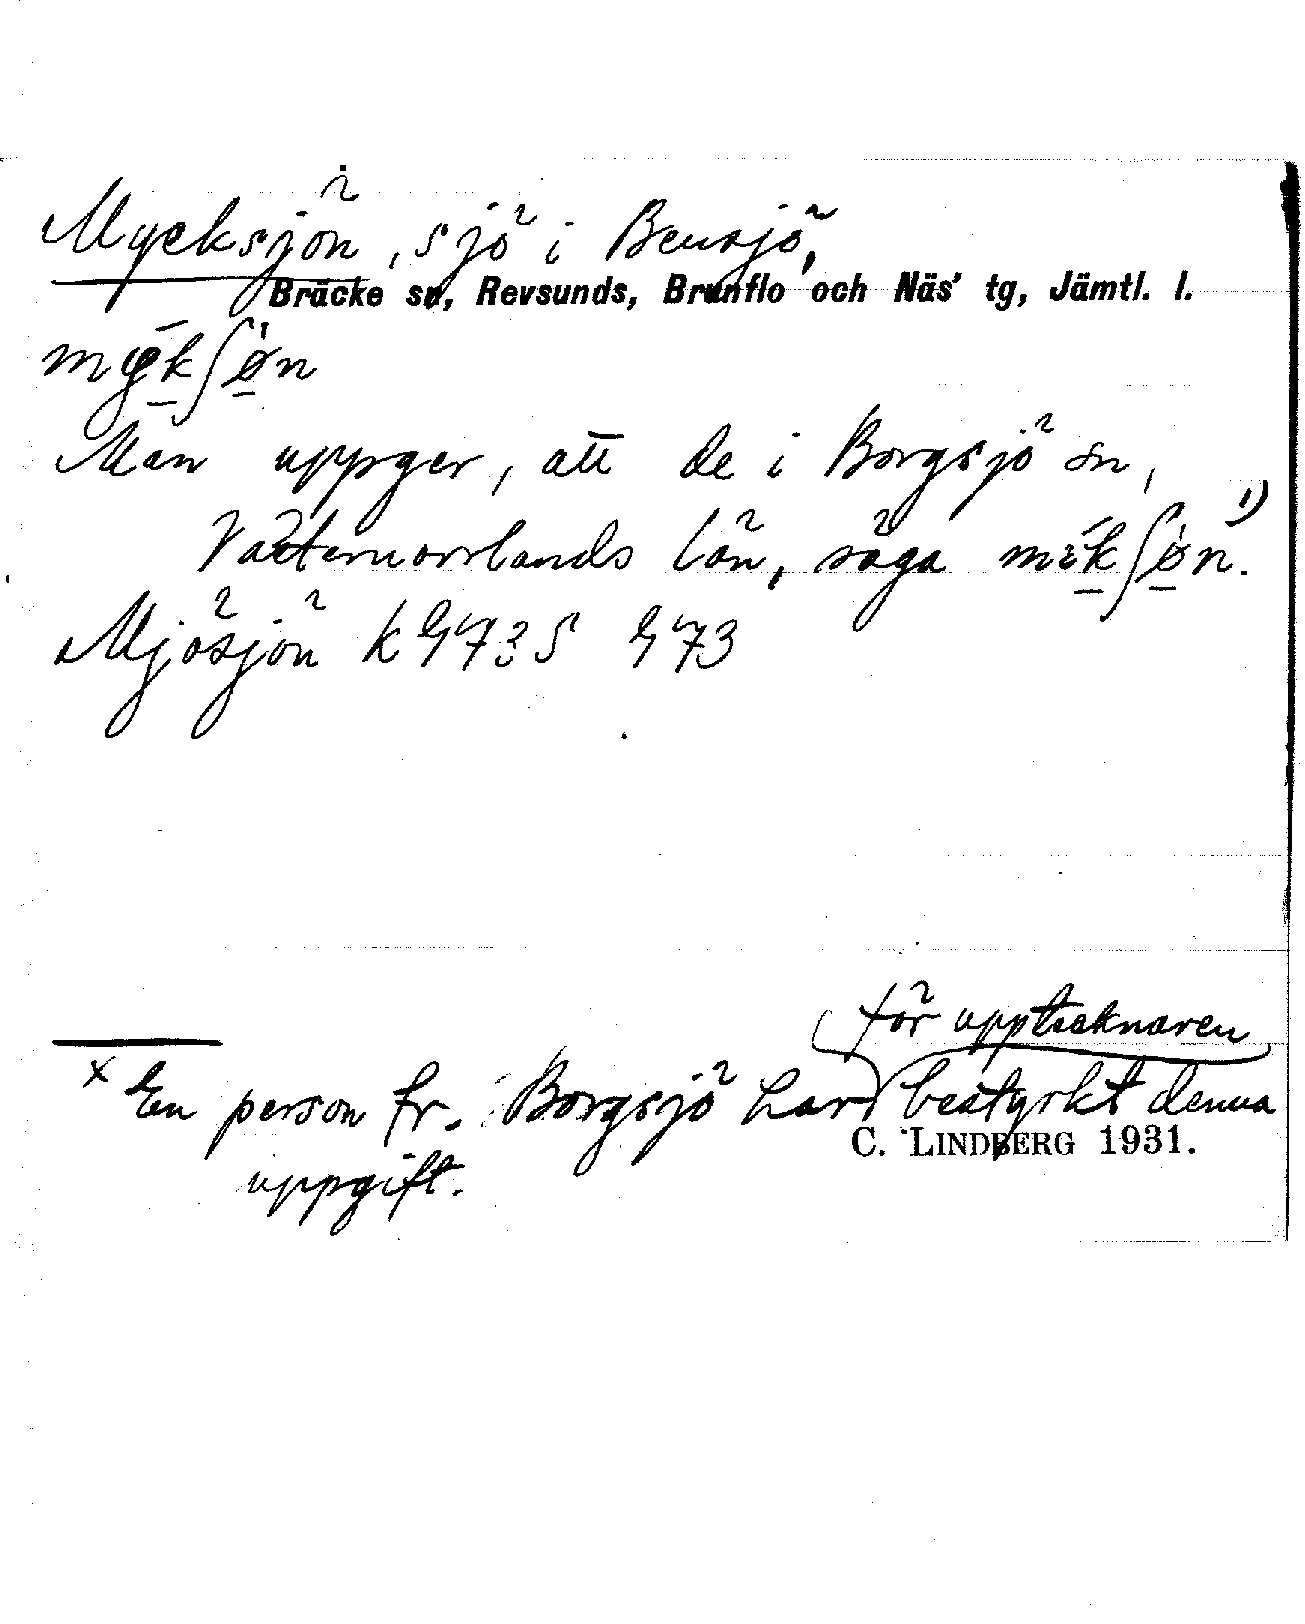 Mycksjön, sjö i Bensjö,
Bräcke sn, Revsunds, Brunflo och Näs' tg, Jämtl. l.
Man uppger, att de i Borgsjö sn,
Västernorrlands län, säga mikʃøn. 1)
Mjösjön k 473 S 473
för upptecknaren
x En person fr. Borgsjö har bestyrkt denna
C. LINDBERG 1931.
uppgift.